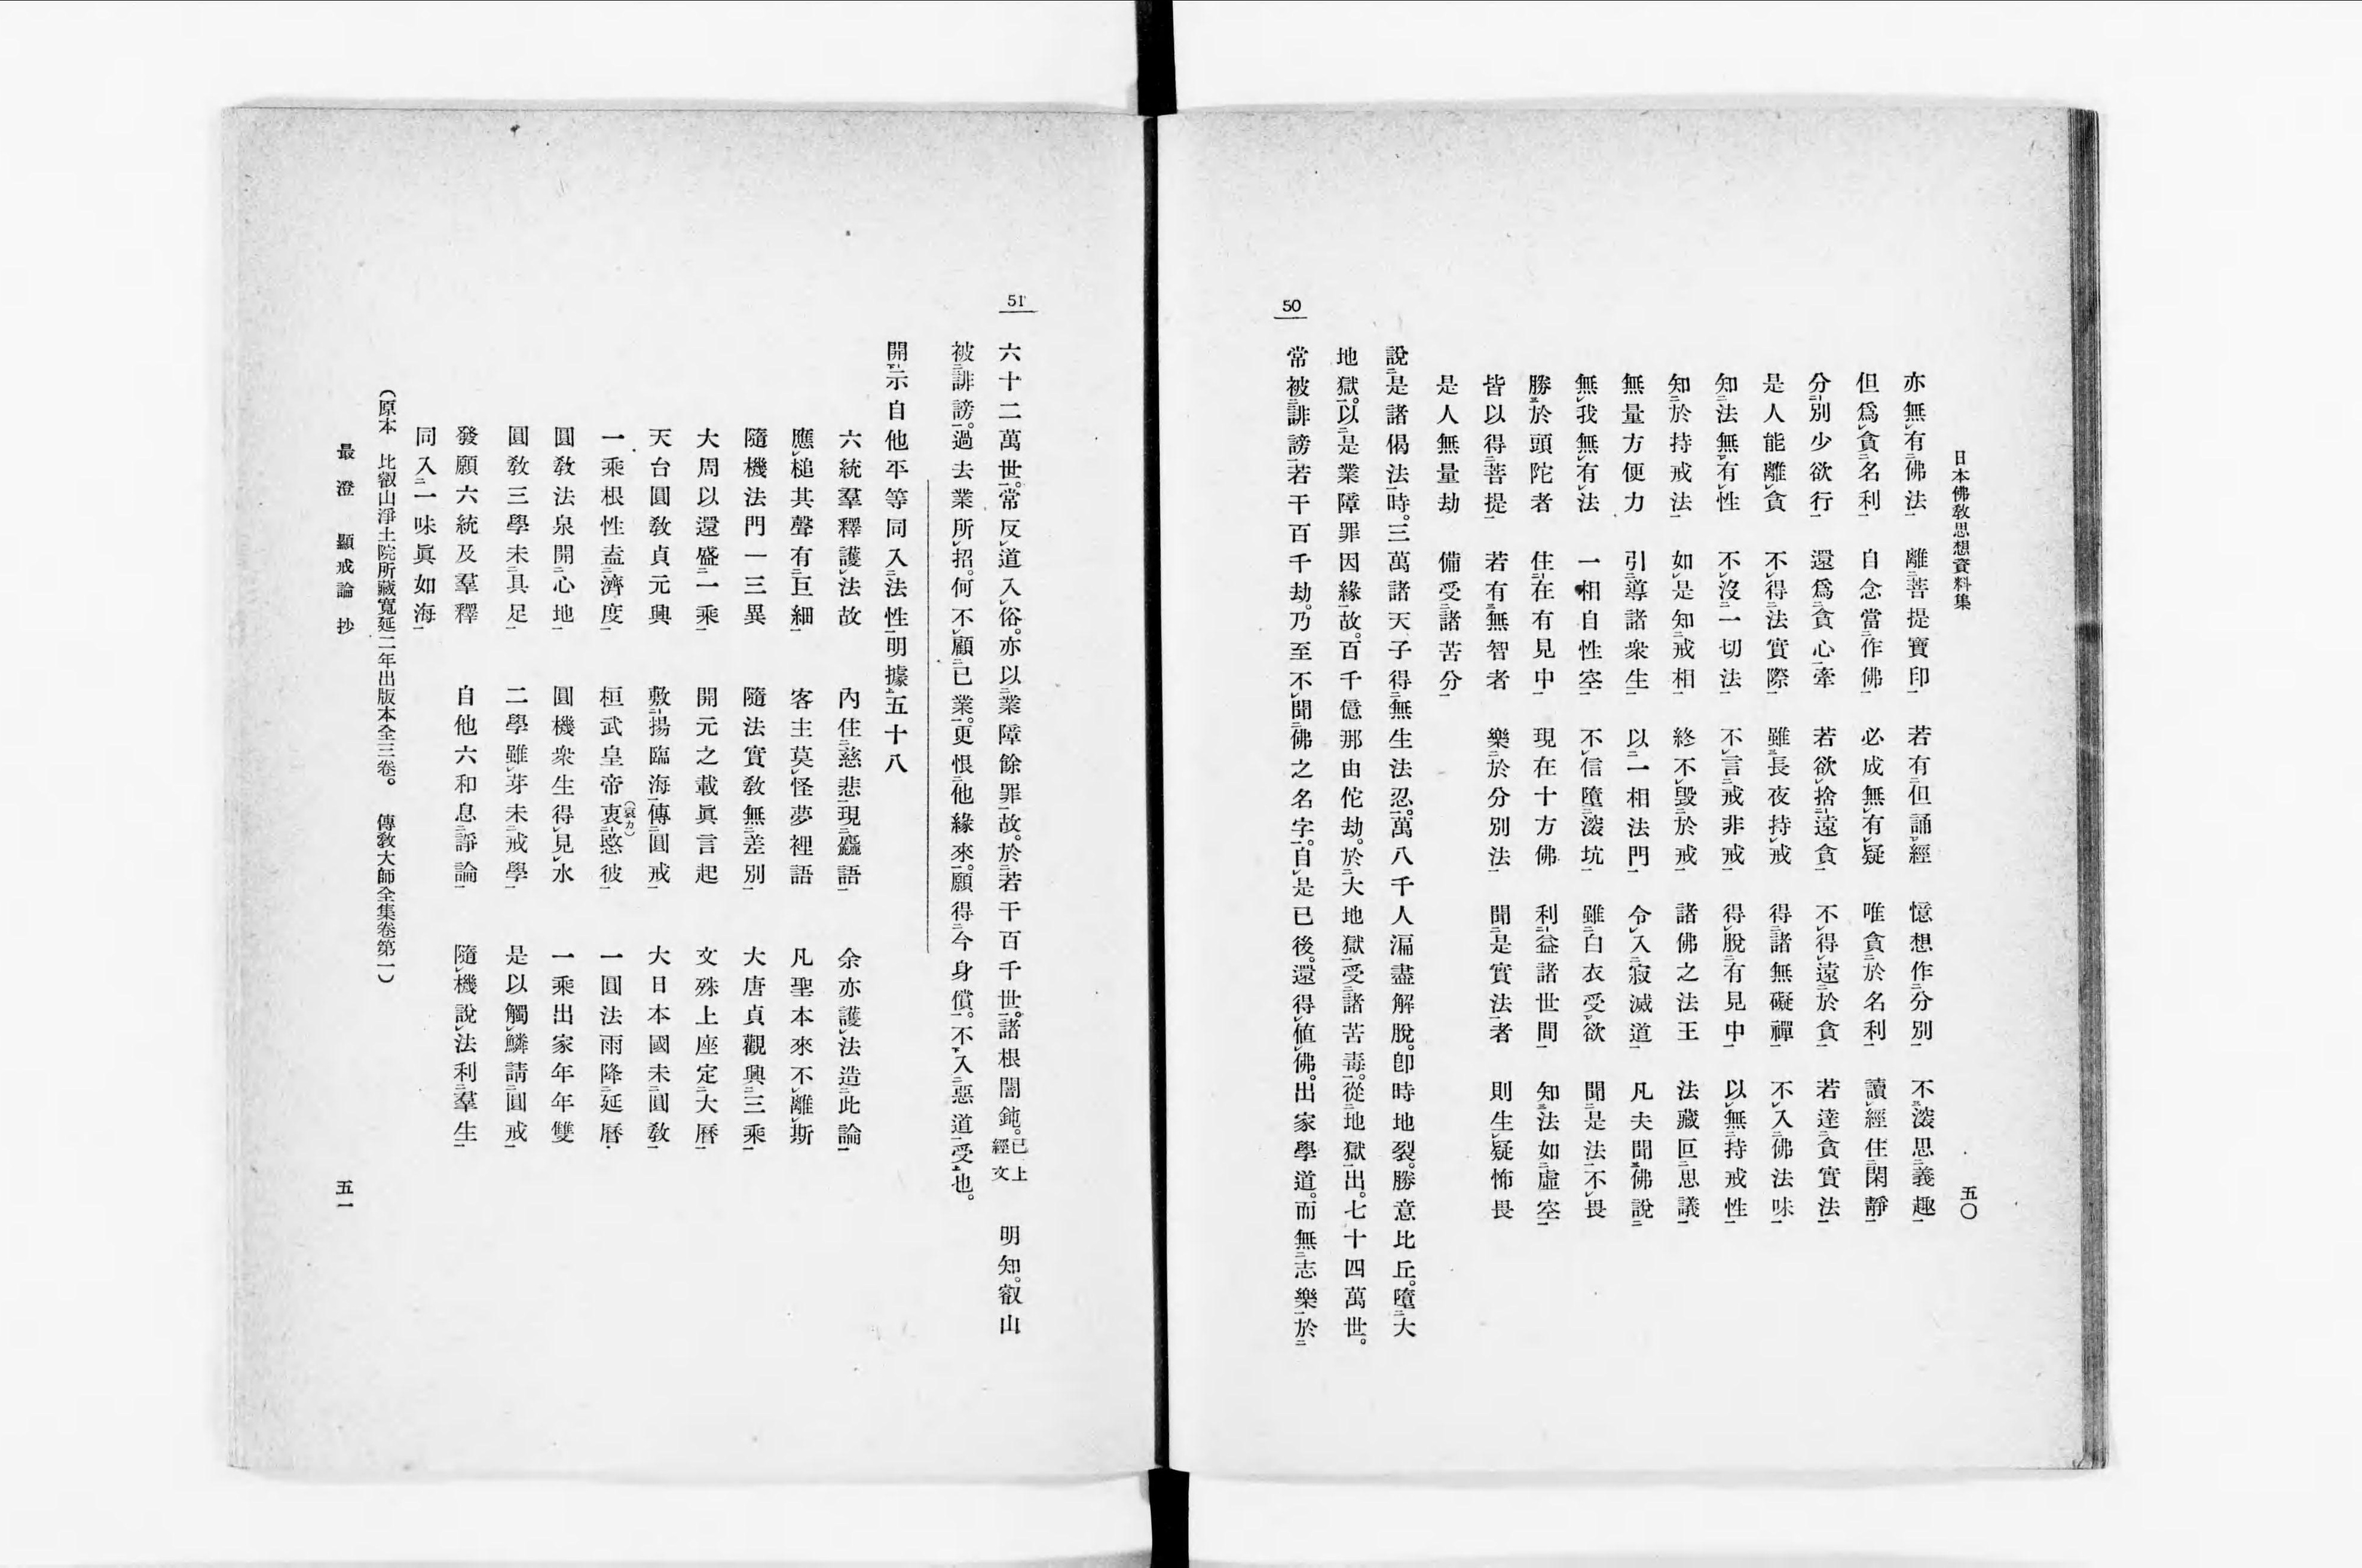 日本佛敎思想資料集　五〇
亦無有佛法　離菩提寶印　若有但誦經　憶想作分別　不深思義趣
但爲貪名利　自念當作佛　必成無有疑　唯貪於名利　讀經住閑靜
分別少欲行　還爲貪心牽　若欲捨遠貪　不得遠於貪　若達貪實法
是人能離貪　不得法實際　雖長夜持戒　得諸無礙禪　不入佛法味
知法無有性　不沒一切法　不言戒非戒　得脫有見中　以無持戒性
知於持戒法　如是知戒相　終不毀於戒　諸佛之法王　法藏叵思議
無量方便力　引導諸衆生　以一相法門　令入寂滅道　凡夫聞佛說
無我無有法　一相自性空　不信墮深坑　雖白衣受欲　聞是法不畏
勝於頭陀者　住在有見中　現在十方佛　利益諸世間　知法如虛空
皆以得菩提　若有無智者　樂於分別法　聞是實法者　則生疑怖畏
是人無量劫　備受諸苦分
說是諸偈法時。三萬諸天子得無生法忍。萬八千人漏盡解脫。卽時地裂。勝意比丘。墮大
地獄。以是業障罪因緣故。百千億那由佗劫。於大地獄。受諸苦毒。從地獄出。七十四萬世。
常被誹謗。若干百千劫。乃至不聞佛之名字。自是已後。還得値佛。出家學道。而無志樂於
50
51
六十二萬世。常反道入俗。亦以業障餘罪故。於若干百千世。諸根闇鈍。已上經文　明知。叡山
被誹謗。過去業所招。何不顧已業。更恨他緣來。願得今身償。不入惡道受也。
開示自他平等同入法性明據五十八
六統羣釋護法故　內住慈悲現麤語　余亦護法造此論
應槌其聲有巨細　客主莫怪夢裡語　凡聖本來不離斯
隨機法門一三異　隨法實敎無差別　大唐貞觀興三乘
大周以還盛一乘　開元之載眞言起　文殊上座定大曆
天台圓敎貞元興　敷揚臨海傳圓戒　大日本國未圓敎
一乘根性盍濟度　桓武皇帝衷(哀カ)愍彼　一圓法雨降延曆
圓敎法泉開心地　圓機衆生得見水　一乘出家年年雙
圓敎三學未具足　二學雖芽未戒學　是以觸鱗請圓戒
發願六統及羣釋　自他六和息諍論　隨機說法利羣生
同入一味眞如海
（原本　比叡山淨土院所藏寬延二年出版本全三卷。　傳敎大師全集卷第一）
最澄　顯戒論抄　五一